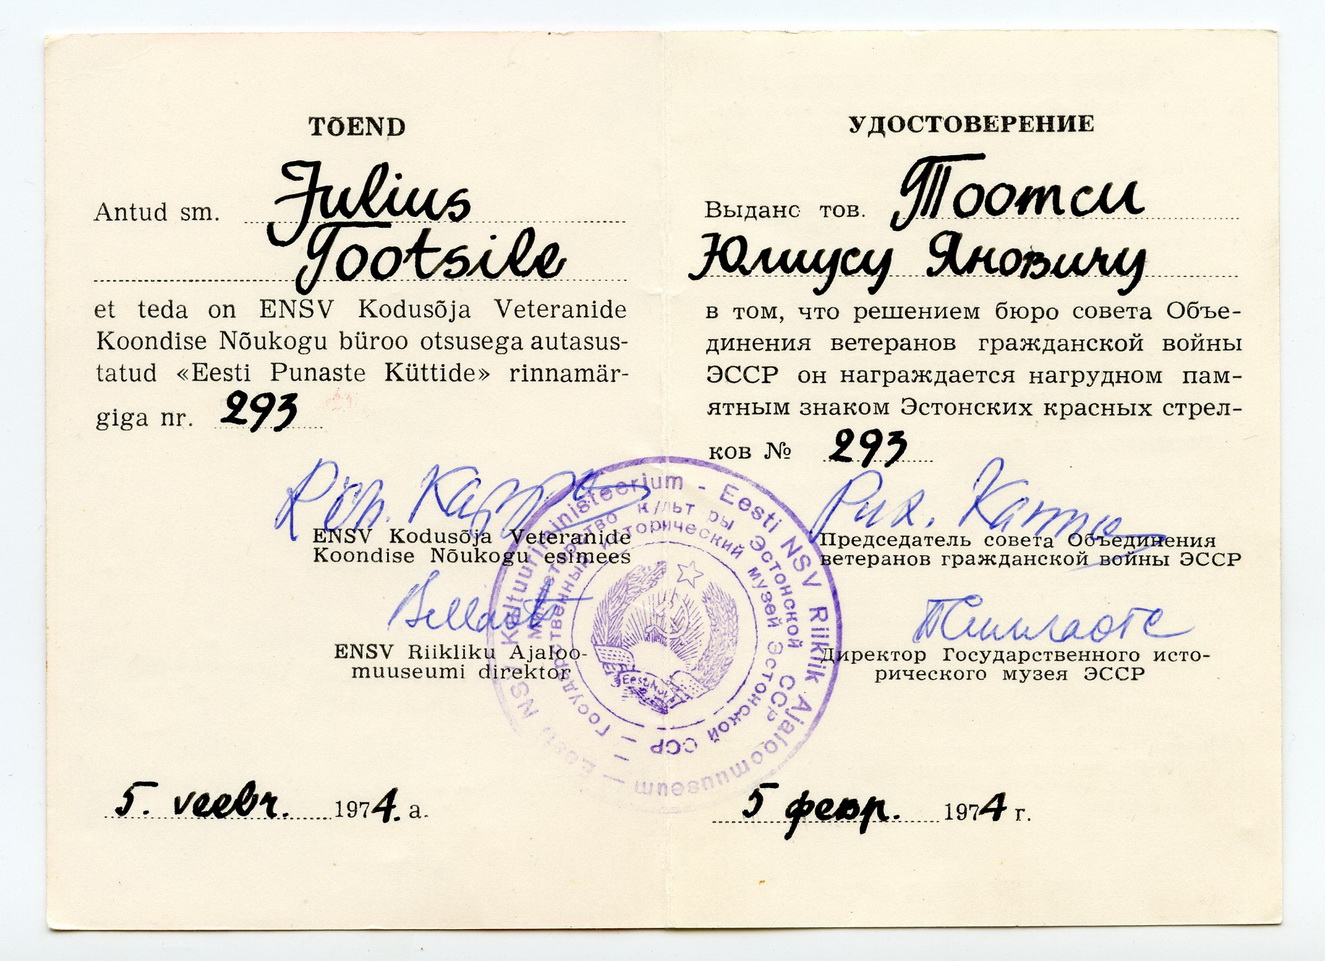 TÕEND
Antud sm. Julius
Tootsile
et teda on ENSV Kodusõja Veteranide
Koondise Nõukogu büroo otsusega autasus-
tatud «Eesti Punaste Küttide» rinnamär-
giga nr. 293
ENSV Kodusõja Veteranide
Koondise Nõukogu esimees
ENSV Riikliku Ajaloo-
muuseumi direktor
5. veebr. 1974. a.
УДОСТОВЕРЕНИЕ
Выдано тов. Тоотси
Юлиусу Яновичу
в том, что решением бюро совета Объе-
динения ветеранов гражданской войны
ЭССР он награждается нагрудном пам-
ятным знаком Эстонских красных стрел-
ков № 293
Председатель совета Объединения
ветеранов гражданской войны ЭССР
Директор Государственного исто-
рического музея ЭССР
5 февр. 1974 г.
Eesti NSV Kultuuriministeerium - Eesti NSV Riiklik Ajaloomuuseum
Министерство культуры Эстонской ССР
Государственный исторический музей Эстонской ССР